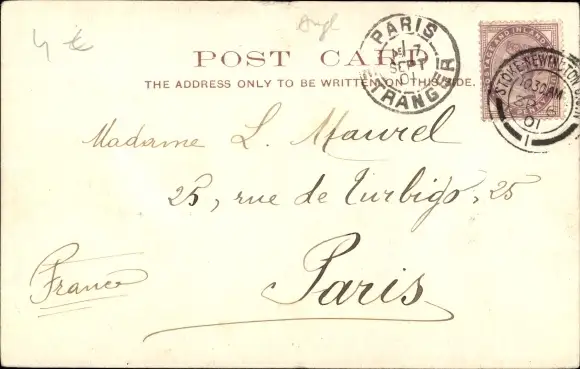 4 €
Angl
POST CARD
THE ADDRESS ONLY TO BE WRITTEN ON THIS SIDE.
PARIS
7
SEPT
01
ETRANGER
STOKE-NEWINGTON
10.30AM
SP
01
1
AND INLAND
Madame L. Maurel
25, rue de Turbigo, 25
Paris
France